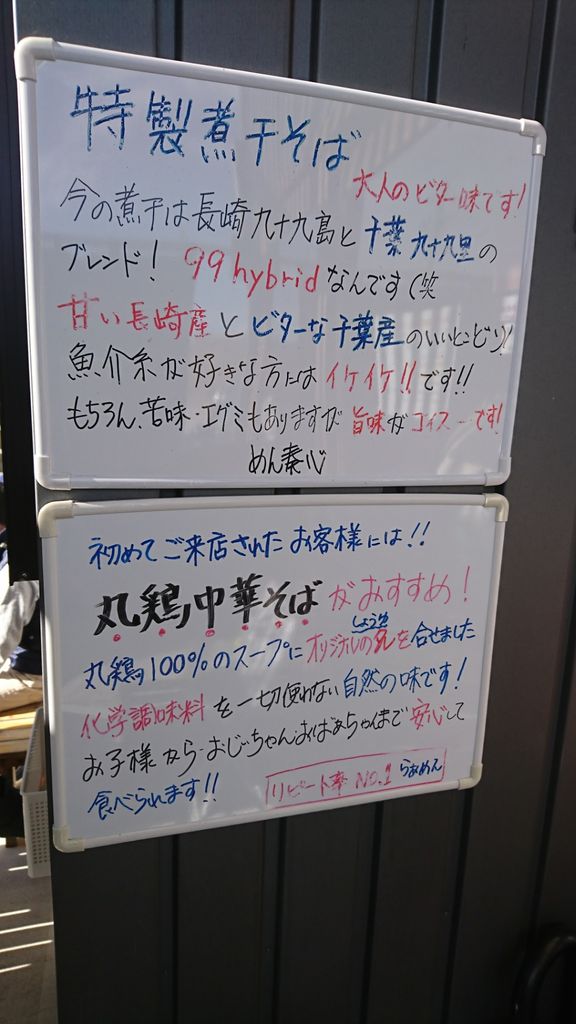 特製煮干そば
大人のビター味です!
今の煮干は長崎九十九島と千葉九十九里の
ブレンド! 99hybridなんです(笑
甘い長崎産とビターな千葉産のいいとこどり!
魚介系が好きな方にはイケイケ!!です!!
もちろん、苦味・エグミもありますが旨味がゴイスーです!
めん奏心
初めてご来店されたお客様には!!
丸鶏中華そばがおすすめ!
しょうゆ
丸鶏100%のスープにオリジナルの元を合せました
化学調味料を一切使わない自然の味です!
お子様から・おじいちゃんおばあちゃんまで安心して
食べられます!!
リピート率No.1らぁめん